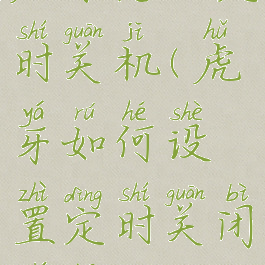 shí guān jī hǔ
时关机(虎
yá rú hé shè
牙如何设
zhì dìng shí guān bì
置定时关闭